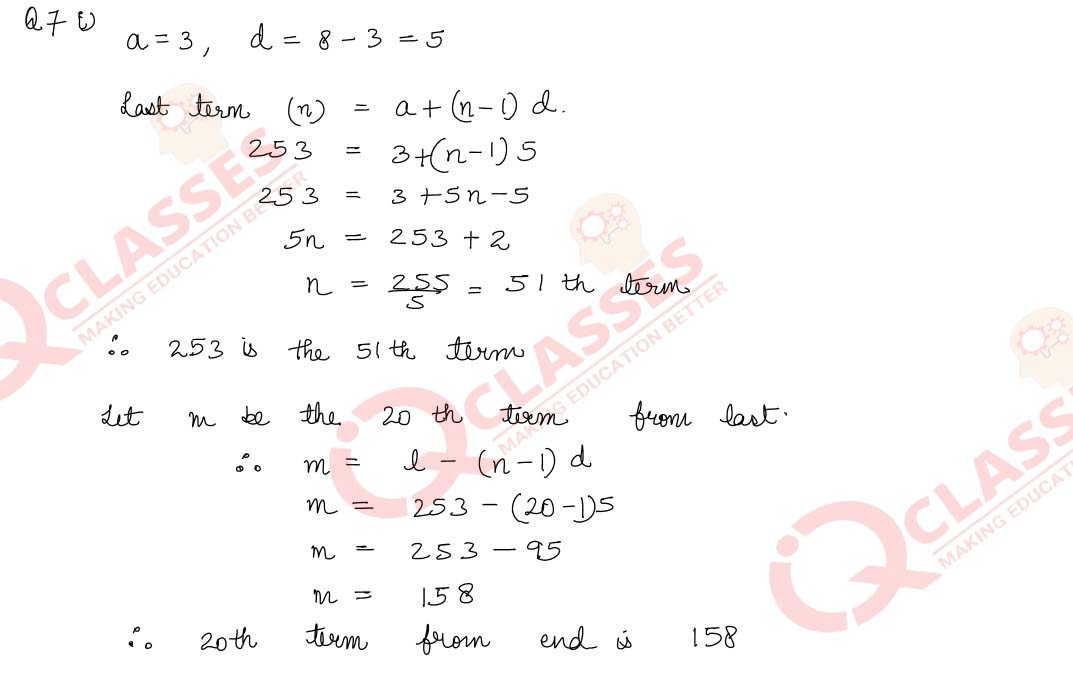 Q7 i)
a = 3, d = 8 - 3 = 5
Last term (n) = a + (n-1) d.
253 = 3+(n-1) 5
253 = 3 +5n-5
5n = 253 + 2
n = 255/5 = 51 th term
∴ 253 is the 51th term
Let m be the 20 th term from last.
∴ m = l - (n-1) d
m = 253 - (20-1)5
m = 253 - 95
m = 158
∴ 20th term from end is 158
CLASSES
MAKING EDUCATION BETTER
CLASSES
MAKING EDUCATION BETTER
CLASSES
MAKING EDUCAT